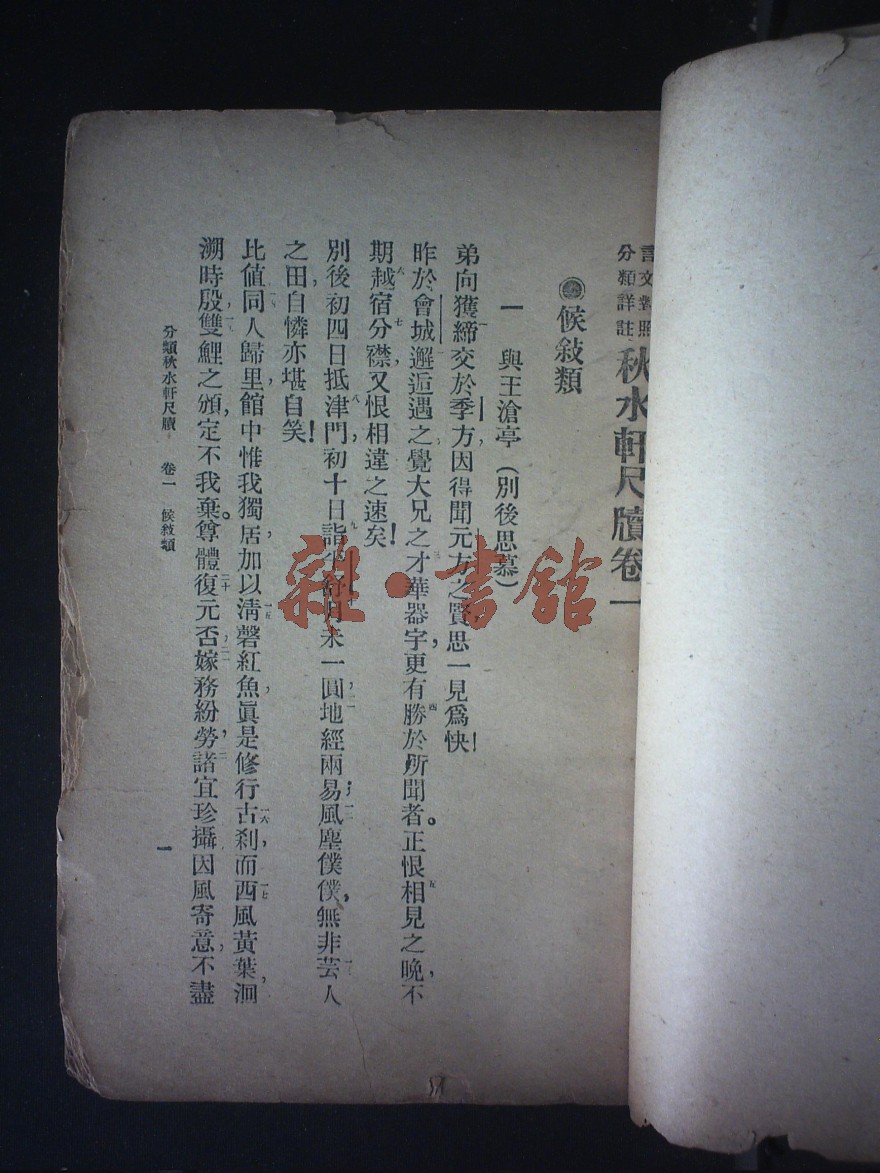 言文對照
分類詳註
秋水軒尺牘卷一
候敍類
一　與王滄亭（別後思慕）
弟向獲締交於季方，因得聞元方之賢思一見爲快！
昨於會城邂逅遇之覺大兄之才華器宇，更有勝於所聞者。正恨相見之晚，不
期越宿分襟，又恨相違之速矣！
別後初四日抵津門，初十日詣 舒月未一圓，地經兩易；風塵僕僕，無非芸人
之田，自憐亦堪自笑！
比値同人歸里，館中惟我獨居，加以淸磬紅魚，眞是修行古刹，而西風黃葉，洄
溯時殷，雙鯉之頒，定不我棄。尊體復元否，嫁務紛勞，諸宜珍攝，因風寄意，不盡
分類秋水軒尺牘　卷一　候敍類
一
雜·書館